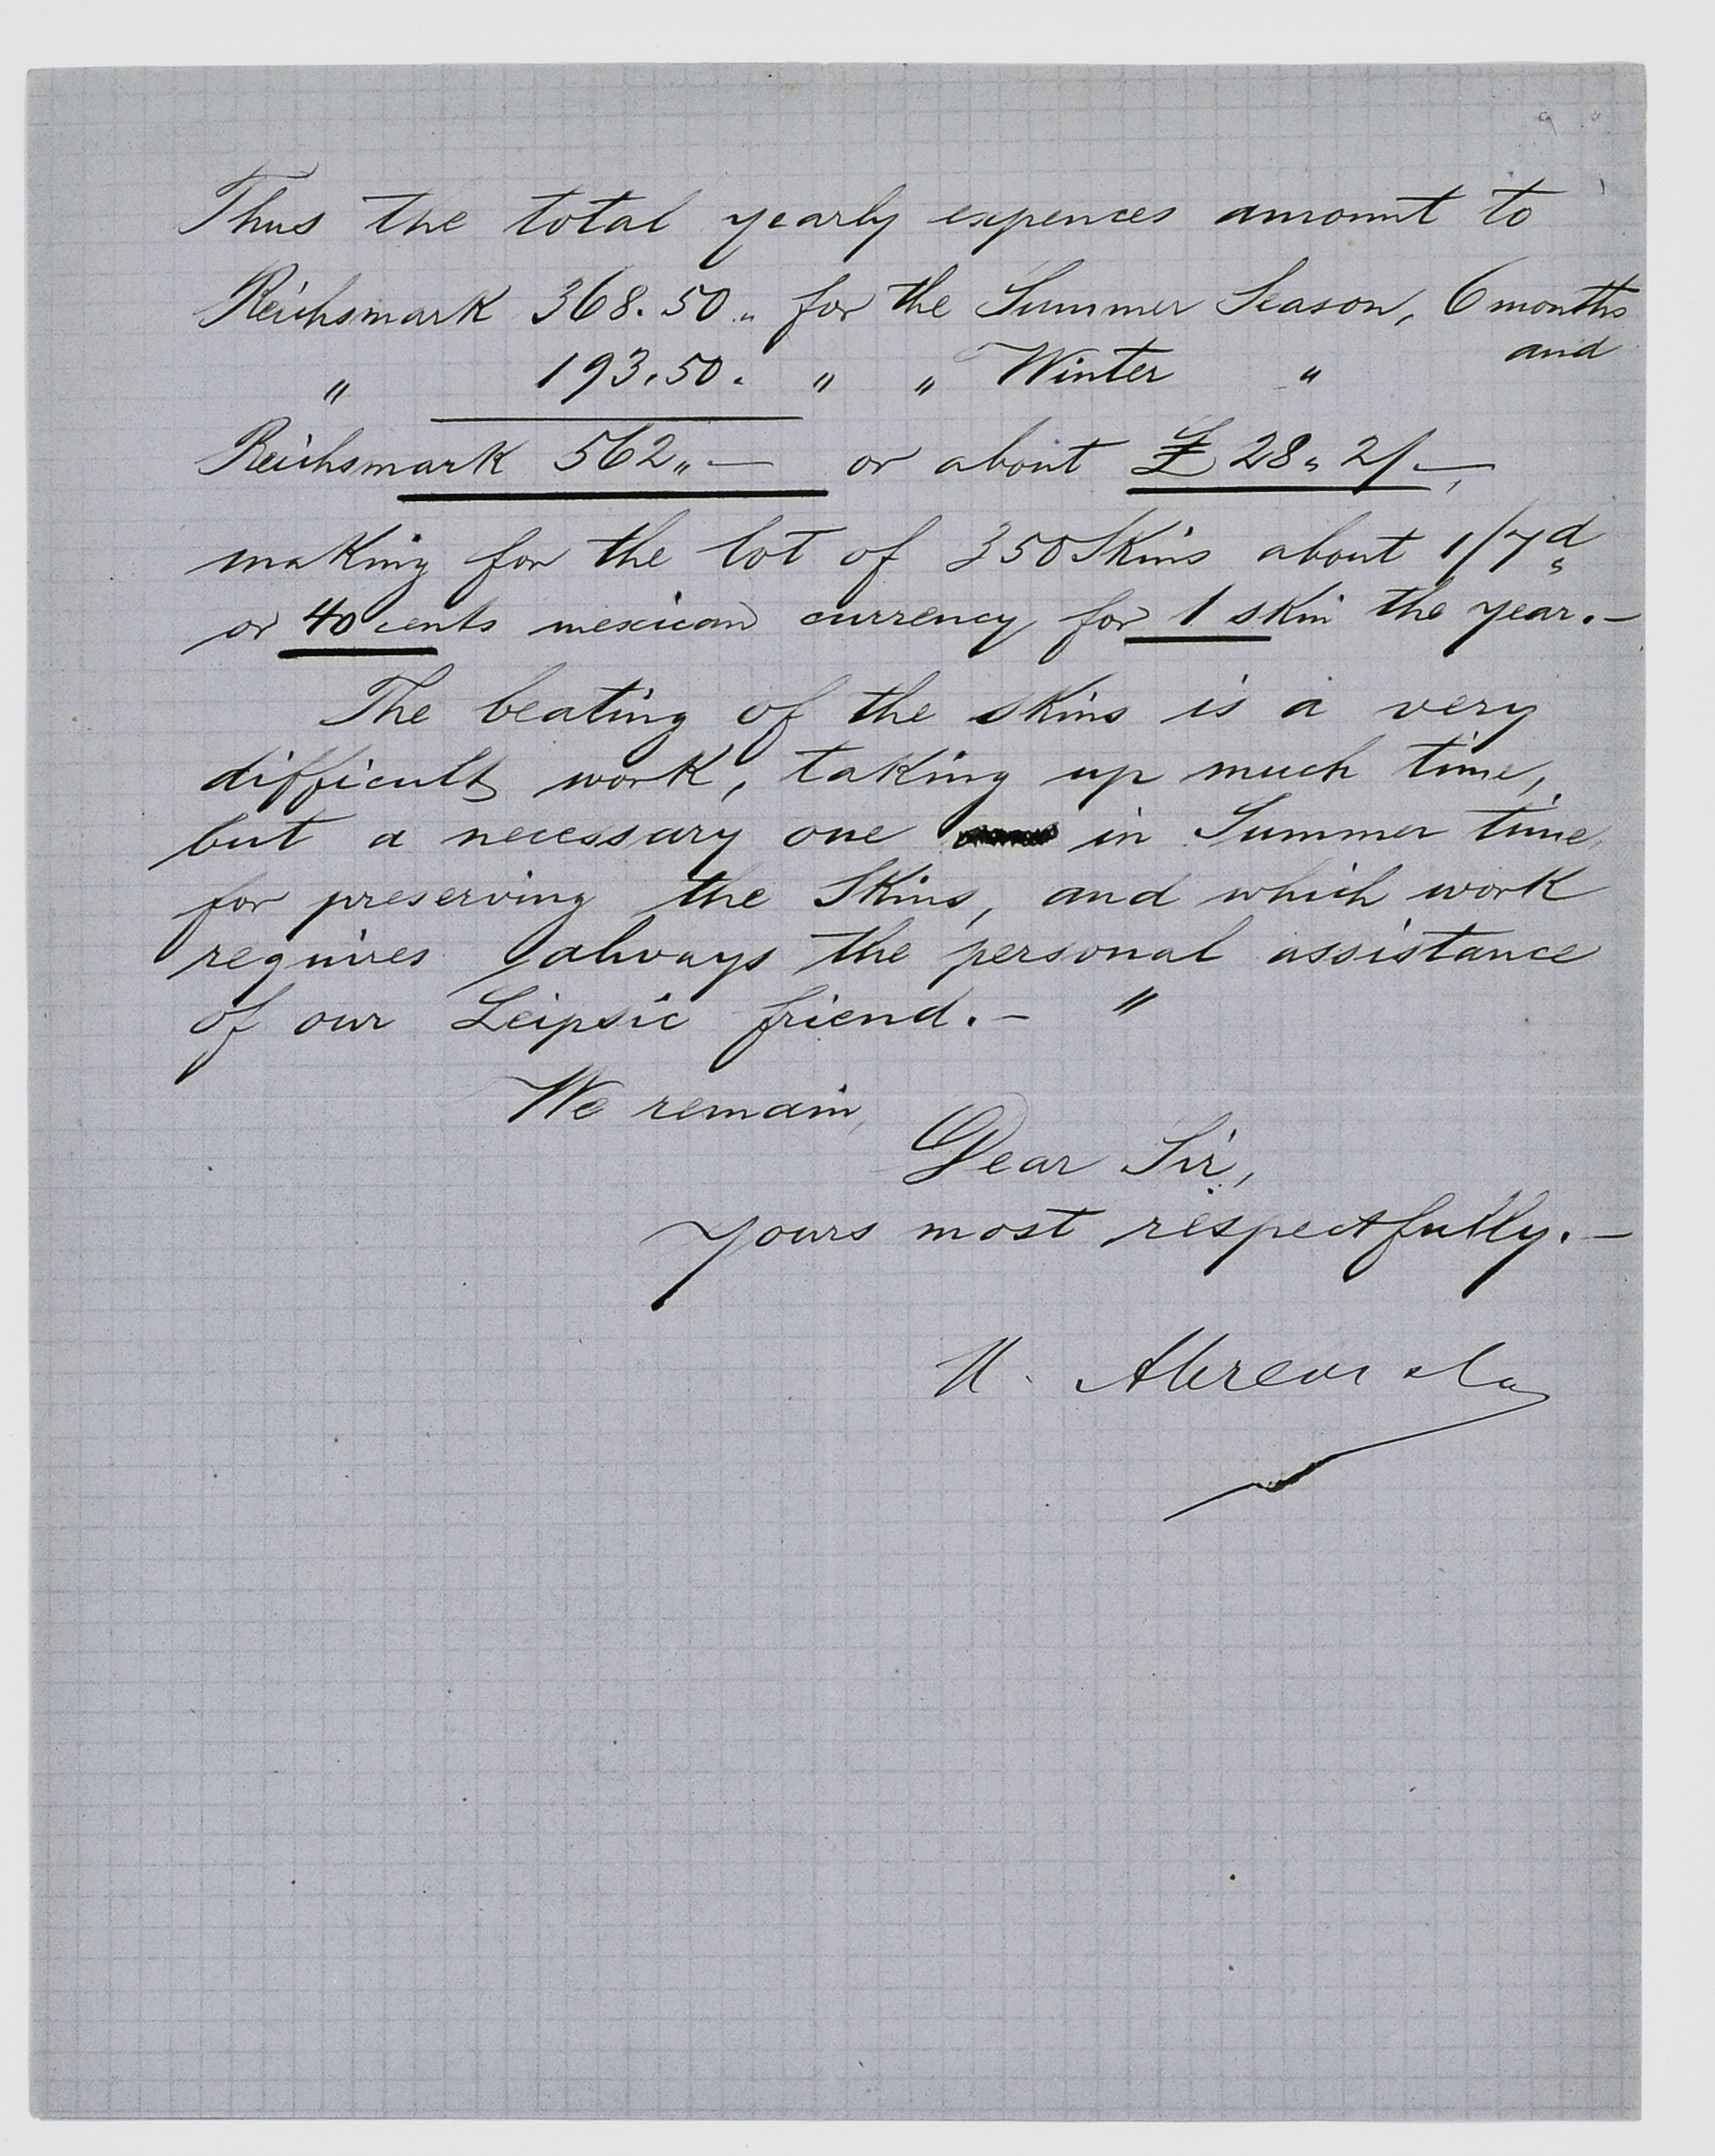 Thus the total yearly expences amount to
Reichsmark 368.50 „ for the Summer Season, 6 months
and
" 193.50. " " Winter "
Reichsmark 562„— or about £ 28„ 2/—,
making for the lot of 350 Skins about 1/7d
or 40 cents mexican currency for 1 skin the year.—
The beating of the skins is a very
difficult work, taking up much time,
but a necessary one in Summer time,
for preserving the Skins, and which work
requires always the personal assistance
of our Leipsic friend.— "
We remain,
Dear Sir,
yours most respectfully.—
H. Ahrens & Co